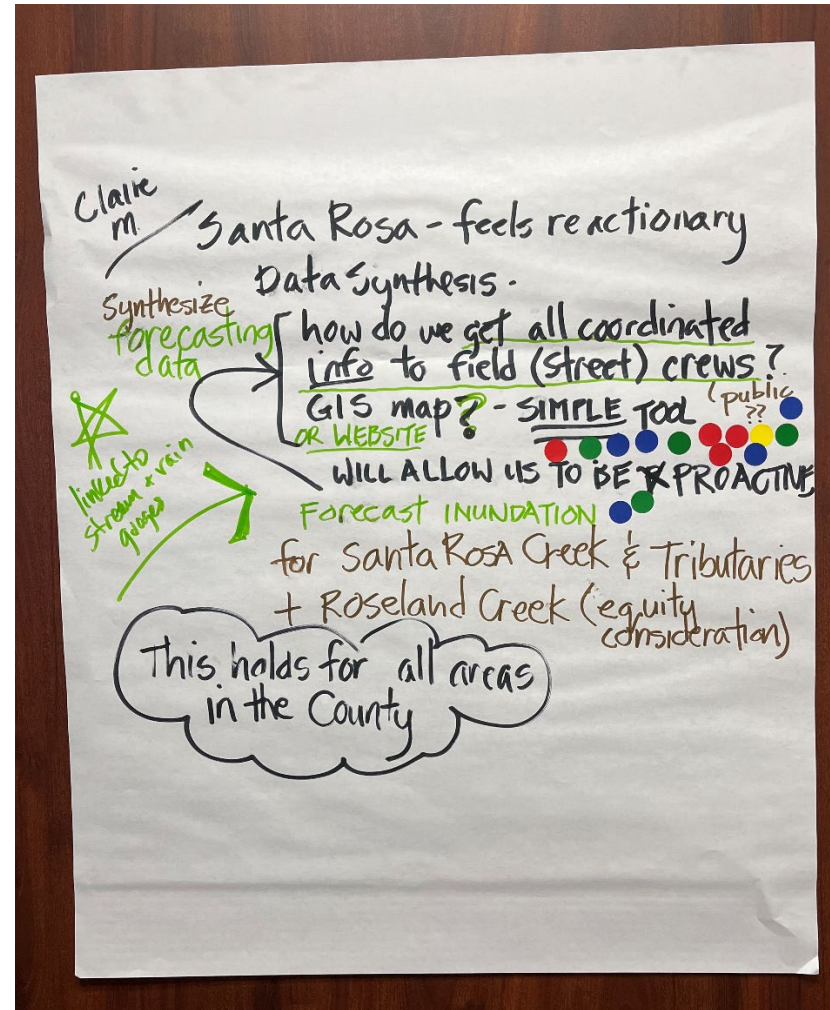 Claire
M.
Santa Rosa - feels reactionary
Data Synthesis.
Synthesize
forecasting
data
how do we get all coordinated
info to field (street) crews?
GIS map? - SIMPLE TOOL
(public
??
OR WEBSITE
WILL ALLOW US TO BE PROACTIVE
linked to
stream + rain
guages
Forecast INUNDATION
for Santa Rosa Creek & Tributaries
+ Roseland Creek (equity
consideration)
This holds for all areas
in the County